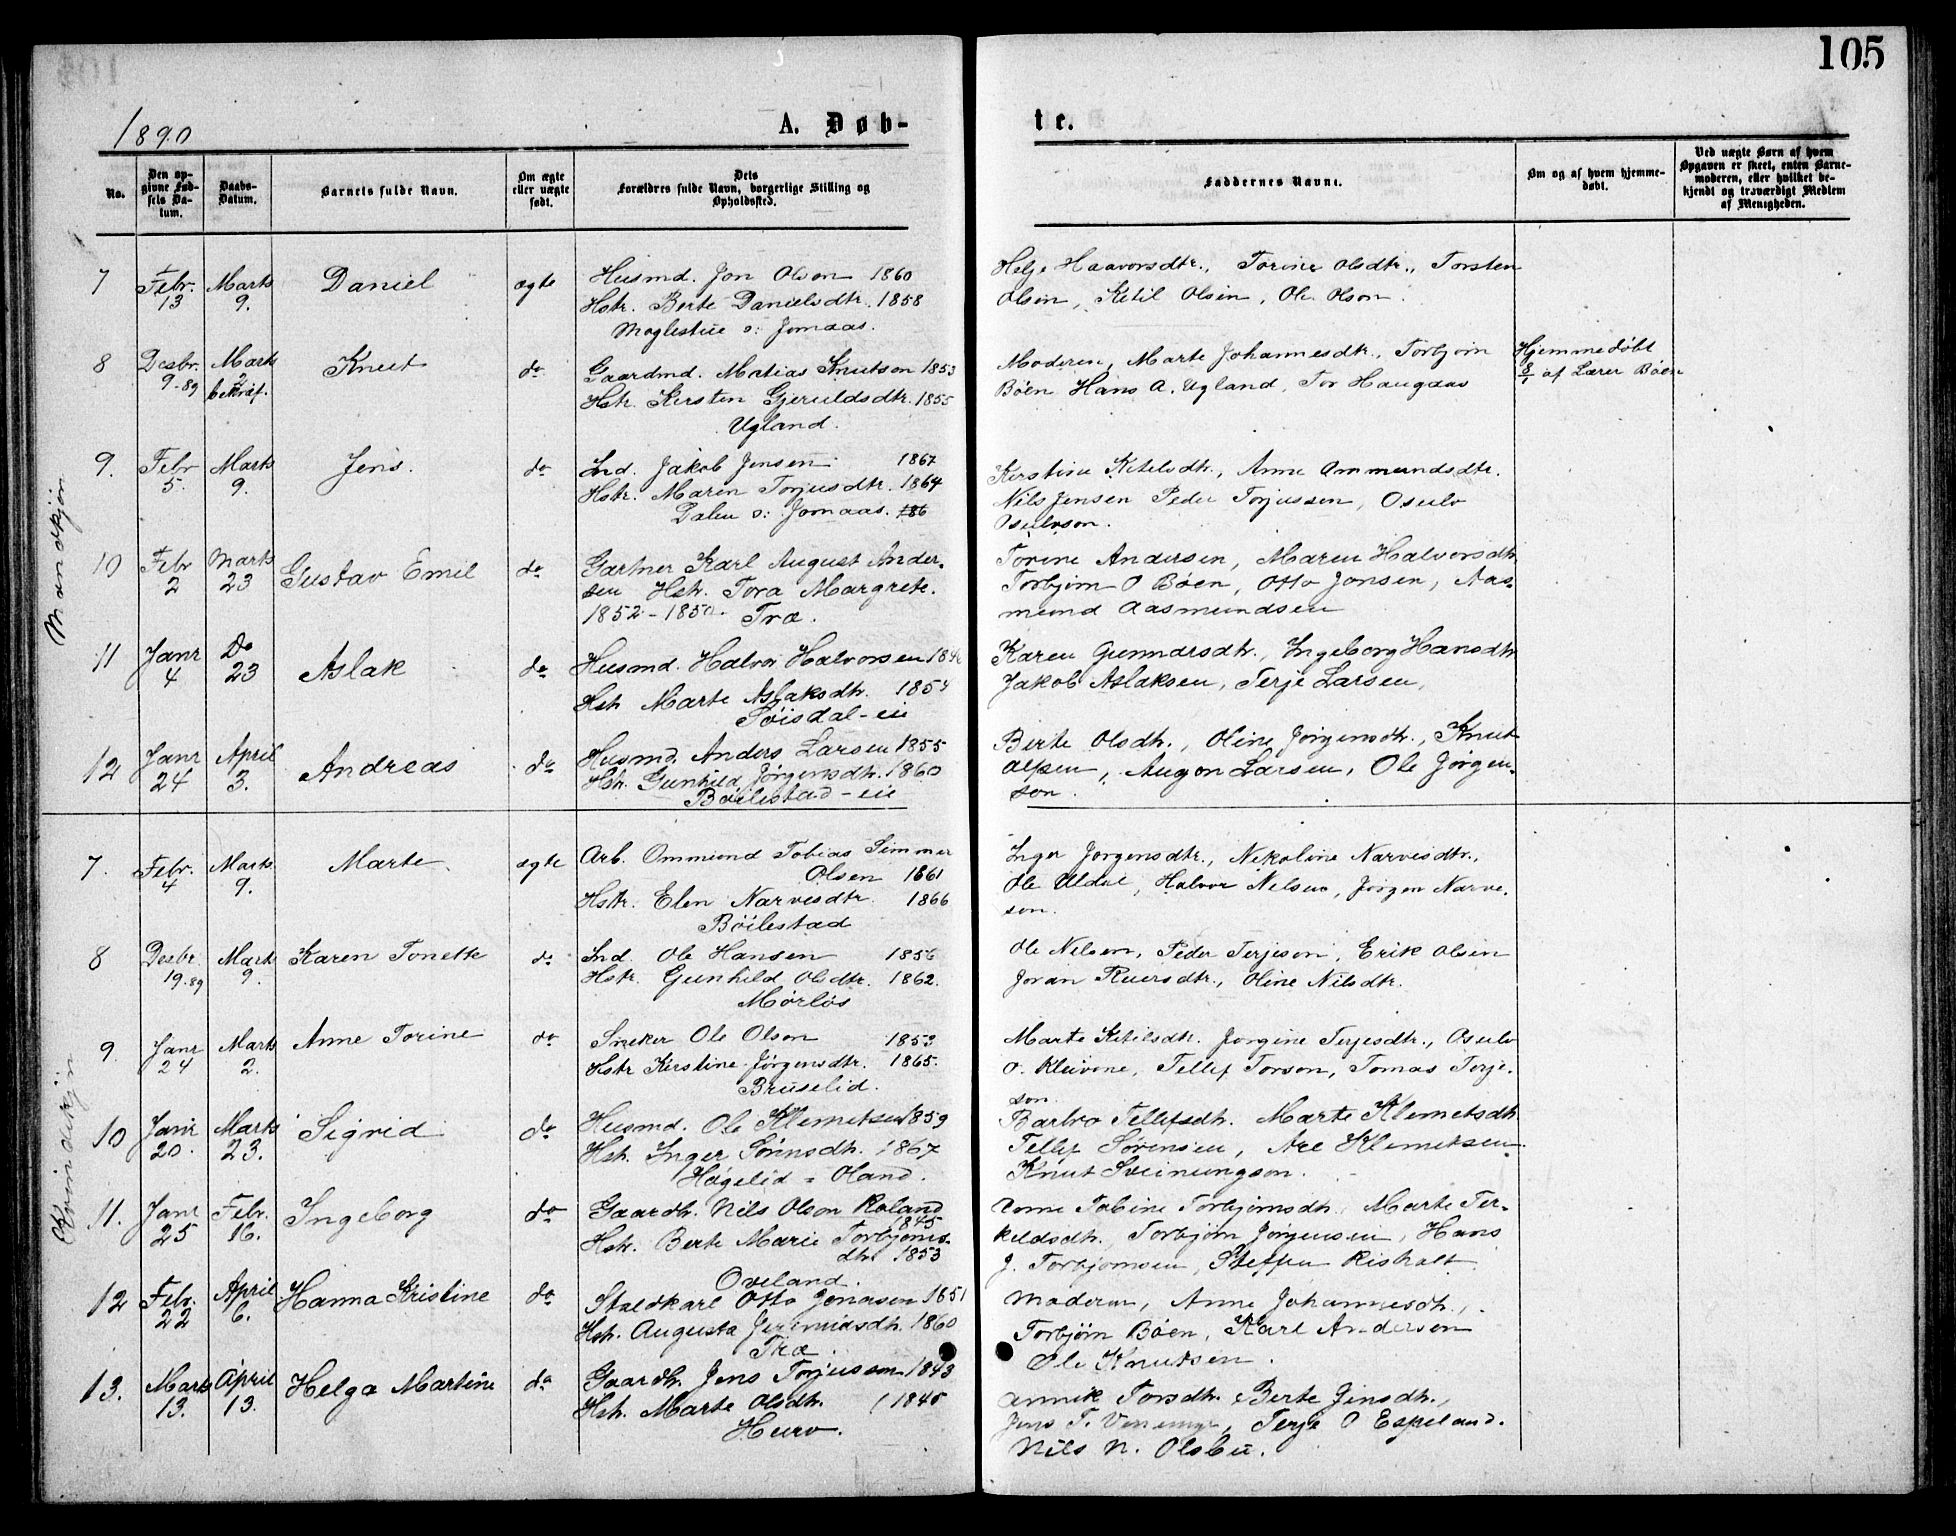 105
1890
A. Døb-
te.
No.
Den opgivne Fødsels Datum.
Daabs-Datum.
Barnets fulde Navn.
Om ægte eller uægte født.
Dets Forældres fulde Navn, borgerlige Stilling og Opholdssted.
Faddernes Navne.
Om og af hvem hjemmedøbt.
Ved uægte Børn af hvem Opgaven er skeet, enten Barnemoderen, eller hvilket bekjendt og troværdigt Medlem af Menigheden.
Mandkjøn
7 Febr. 13 Marts 9. Daniel ægte
Husmd. Jon Olson 1860
Hstr. Berte Danielsdtr. 1858
Moglestue o: Jomaas.
Helje Haavorsdtr., Torine Olsdtr., Torsten
Olsen, Ketil Olsen, Ole Olson.
8 Desbr. 9-89 Marts 2 bekræf. Knut do
Gaardmd. Matias Knutson 1853
Hstr. Kirsten Gjeruldsdtr. 1855
Ugland.
Moderen, Marte Johannesdtr., Torbjørn
Bøen Hans A. Ugland, Tor Haugaas
Hjemmedøbt
8/1 af Lærer Bøen
9. Febr 5. Marts 9. Jens. do
Ind. Jakob Jensen 1867
Hstr. Maren Torjusdtr. 1864
Dalen o: Jomaas. 186
Kirstine Ketilsdtr., Anne Ommundsdtr.
Nils Jensen Peder Torjussen, Osulv
Osulvson.
10 Febr 2 Marts 23 Gustav Emil do
Gartner Karl August Ander-
sen Hstr. Tora Margrete.
1852-1850. Træ.
Torine Andersen, Maren Halvorsdtr
Torbjørn O Bøen, Otto Jonsen, Aas-
mund Aasmundsen
11 Janr 4 Do 23 Aslak do
Husmd. Halvor Halvorsen
Hstr Marte Aslaksdtr. 1854
Søisdal-eie
Karen Gunnarsdtr., Ingeborg Hansdtr
Jakob Aslaksen, Terje Larsen,
12 Janr 24 April 3. Andreas do
Husmd. Anders Larsen 1855
Hstr. Gunhild Jørgensdtr. 1860
Bøilestad-eie
Berte Olsdtr., Oline Jørgensdtr., Knut
Augon Larsen, Ole Jørgen-
son.
Kvindekjøn
7. Febr. 4 Marts 9. Marte ægte
Arb. Ommund Tobias Simmer
Olsen 1861
Hstr. Elen Narvesdtr. 1866
Bøilestad
Inger Jørgensdtr., Nekoline Narvesdtr.,
Ole Uldal, Halvor Nelsen, Jørgen Narve-
son.
8 Desbr. 19-89 Marts 9. Karen Tonette do
Ind. Ole Hansen 1856
Hstr. Gunhild Olsdtr. 1862.
Mørløs
Ole Nelson, Peder Terjeson, Erik Olsen
Joran Ruersdtr., Oline Nilsdtr.
9. Janr 24 Marts 2. Anne Torine do
Sneker Ole Olson 1853
Hstr Kirstine Jørgensdtr. 1865.
Bruselid.
Marte Ketilsdtr. Jorgine Terjesdtr., Osulv
O. Kleivene, Tellef Torson, Tomas Terje-
son.
10 Janr 20. Marts 23. Sigrid do
Husmd. Ole Klemetsen 1859
Hstr. Inger Sørensdtr. 1867
Høgelid - Oland.
Barbro Tellefsdtr. Marte Klemetsdtr
Tellef Sørensen, Are Klemetsen
Knut Sveinungson.
11. Janr 25 Febr. 16. Ingeborg do
Gaardbr. Nils Olson Roland
1845
Hstr. Berte Marie Torbjørns-
dtr 1853
Oveland.
Anne Tobine Torbjørnsdtr. Marte Ter-
keldsdtr., Torbjørn Jørgensen, Hans
J. Torbjørnsen, Steffen Risholt
12 Febr. 22 April 6. Hanna Kristine do
Staldkarl Otto Jonasen 1851
Hstr. Augusta Jeremiasdtr. 1860
Træ.
Moderen, Anne Johannesdtr.,
Torbjørn Bøen, Karl Andersen
Ole Knutsen.
13. Marts 13. April 13. Helga Martine do
Gaardbr. Jens Torjussen 1843
Hstr. Marte Olsdtr. 1845
Hurv.
Annik Torsdtr. Berte Jensdtr.,
Jens T. Terje O Espeland.
Nils N. Olsbu.